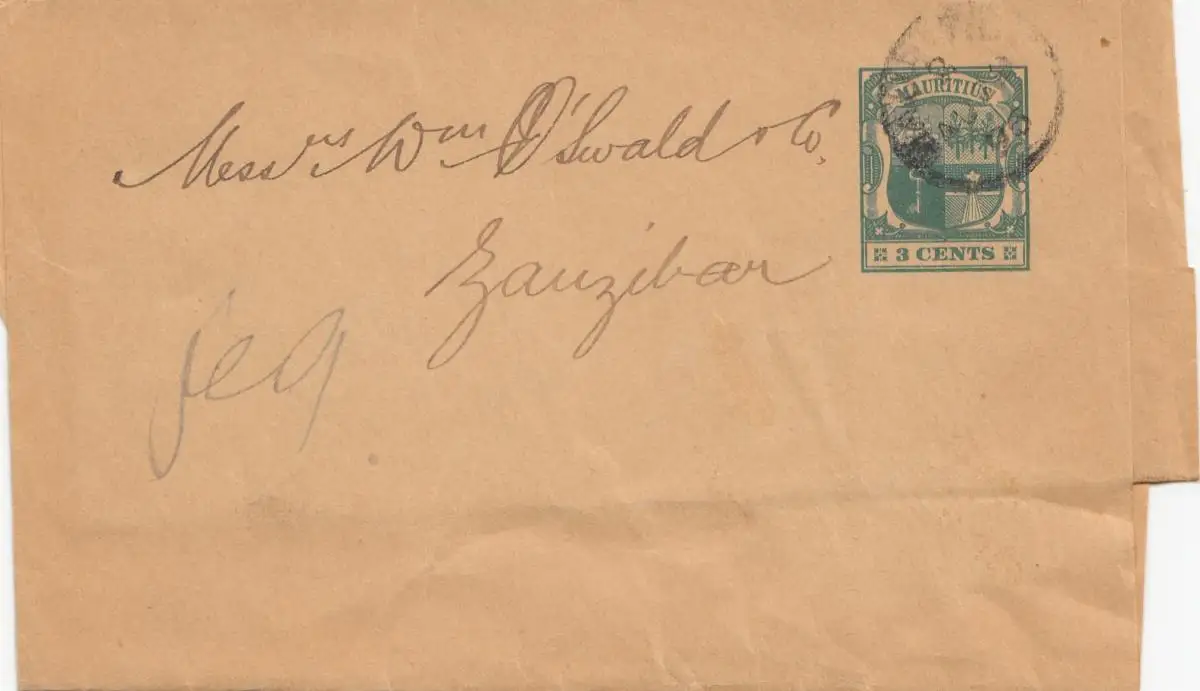 MAURITIUS
Messrs Wm O'Swald & Co.
Zanzibar
3 CENTS